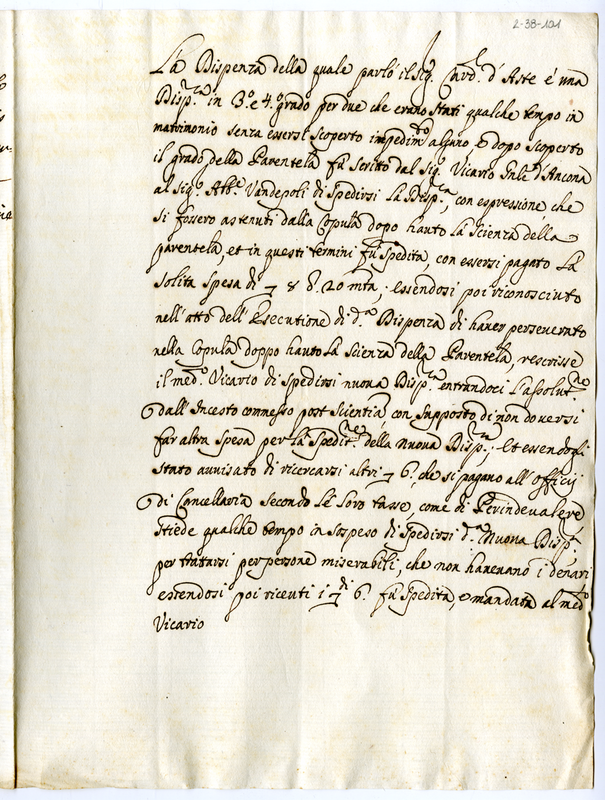 2-38-101
La Dispenza della quale parlò il Sig. Card. d'Aste è una
Disp.za in 3.o e 4.o grado per due che erano stati qualche tempo in
matrimonio senza essersi scoperto impedim.to alcuno e dopo scoperto
il grado della Parentela fù scritto dal Sig. Vicario Gnle d'Ancona
al Sig. Ab.e Vandepoli di spedirsi la Disp.za, con espressione che
si fossero astenuti dalla Copula dopo hauto la scienza della
parentela, et in questi termini fù spedita con essersi pagato la
solita spesa di 8 20 mta, essendosi poi riconosciuto
nell'atto dell'Esecutione di d.a Dispenza di haver perseverato
nella Copula doppo hauto la scienza della Parentela, rescrisse
il med.o Vicario di spedirsi nuova Disp.za entrandoci l'assolut.ne
dall'Incesto commesso post scientia, con supposto di non doversi
far altra spesa per la spedit.ne della nuova Disp.za, et essendogli
stato avvisato di ricercarsi altri 6. che si pagano all'Officij
di Cancellaria secondo le loro tasse, come di Perinde valere
stiede qualche tempo in sospeso di spedirsi d.a Nuova Disp.a
per trattarsi per persone miserabili, che non havevano i denari
essendosi poi riceuti i di 6. fù spedita, e mandata al med.o
Vicario